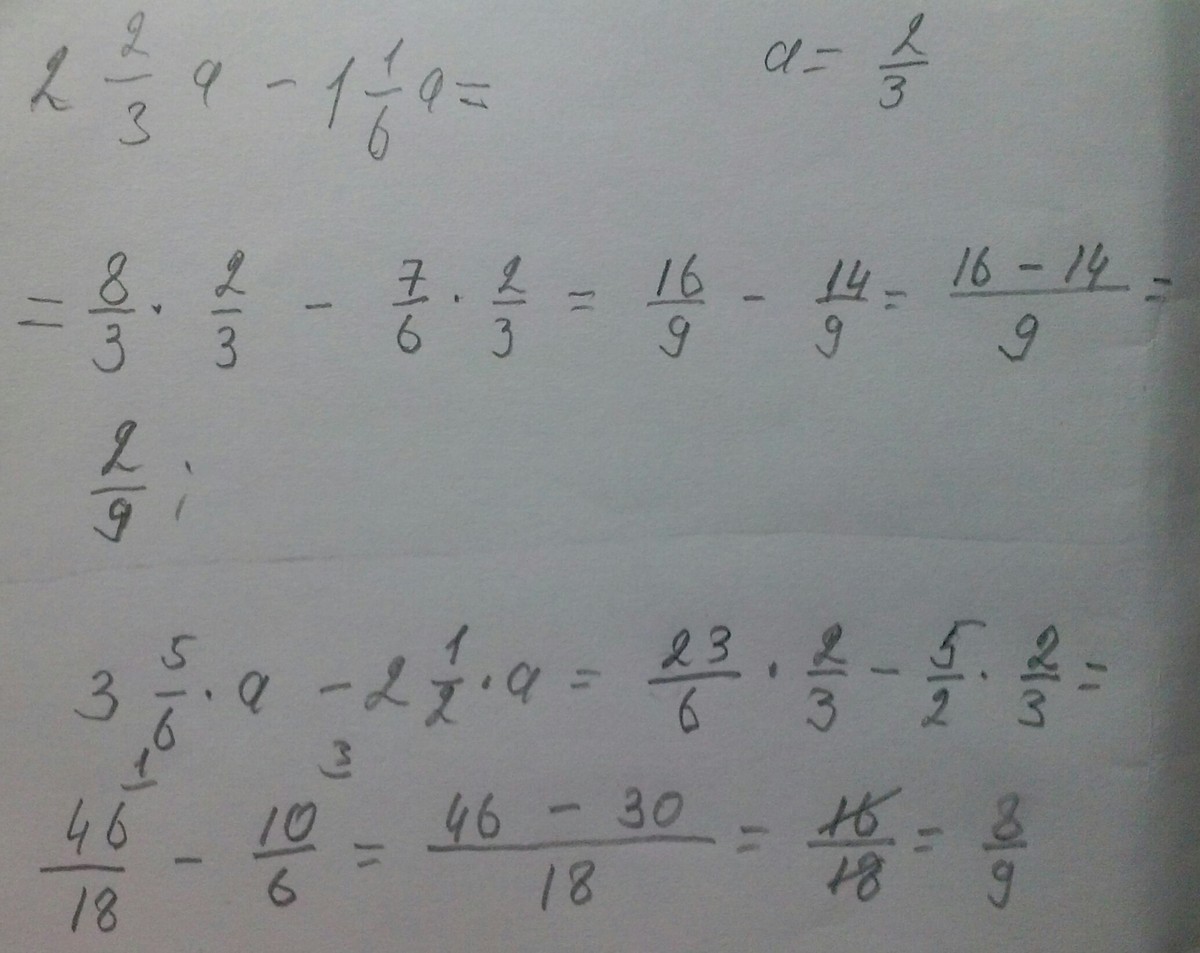 2 2/3 a - 1 1/6 a =    a = 2/3
= 8/3 · 2/3 - 7/6 · 2/3 = 16/9 - 14/9 = 16 - 14/9 =
2/9 ;
3 5/6 · a - 2 1/2 · a = 23/6 · 2/3 - 5/2 · 2/3 =
46/18 1 - 10/6 3 = 46 - 30/18 = 16/18 = 8/9